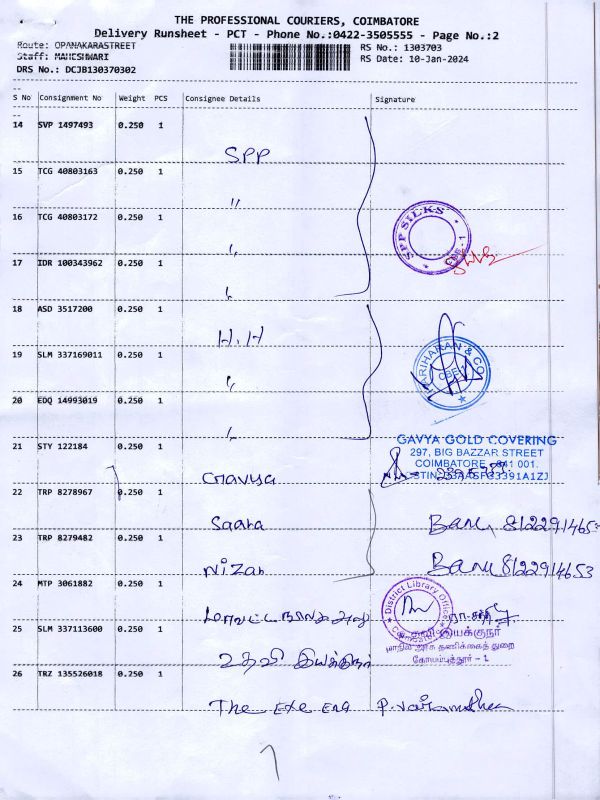 THE PROFESSIONAL COURIERS, COIMBATORE
Delivery Runsheet - PCT - Phone No.:0422-3505555 - Page No.:2
Route: OPANAKARASTREET
RS No.: 1303703
Staff: MAHESHWARI
RS Date: 10-Jan-2024
DRS No.: DCJB130370302
S No Consignment No Weight PCS Consignee Details Signature
14 SVP 1497493 0.250 1
SPP
15 TCG 40803163 0.250 1
"
16 TCG 40803172 0.250 1
SPP SILKS
CBE - 1
17 IDR 100343962 0.250 1
18 ASD 3517200 0.250 1
H.H
HARIHARAN & CO
CBE
19 SLM 337169011 0.250 1
20 EDQ 14993019 0.250 1
21 STY 122184 0.250 1
GAVYA GOLD COVERING
297, BIG BAZZAR STREET
COIMBATORE - 641 001.
Gavya
22 TRP 8278967 0.250 1
Saara Banu 8122914653
23 TRP 8279482 0.250 1
Nizab Banu 8122914653
24 MTP 3061882 0.250 1
District Library Officer
Coimbatore
மாவட்ட நூலக
25 SLM 337113600 0.250 1
உதவி இயக்குநர்
உதவி இயக்குநர்
மாநில அரசு தணிக்கைத் துறை
கோயம்புத்தூர் - 1
26 TRZ 135526018 0.250 1
The Exe Eng